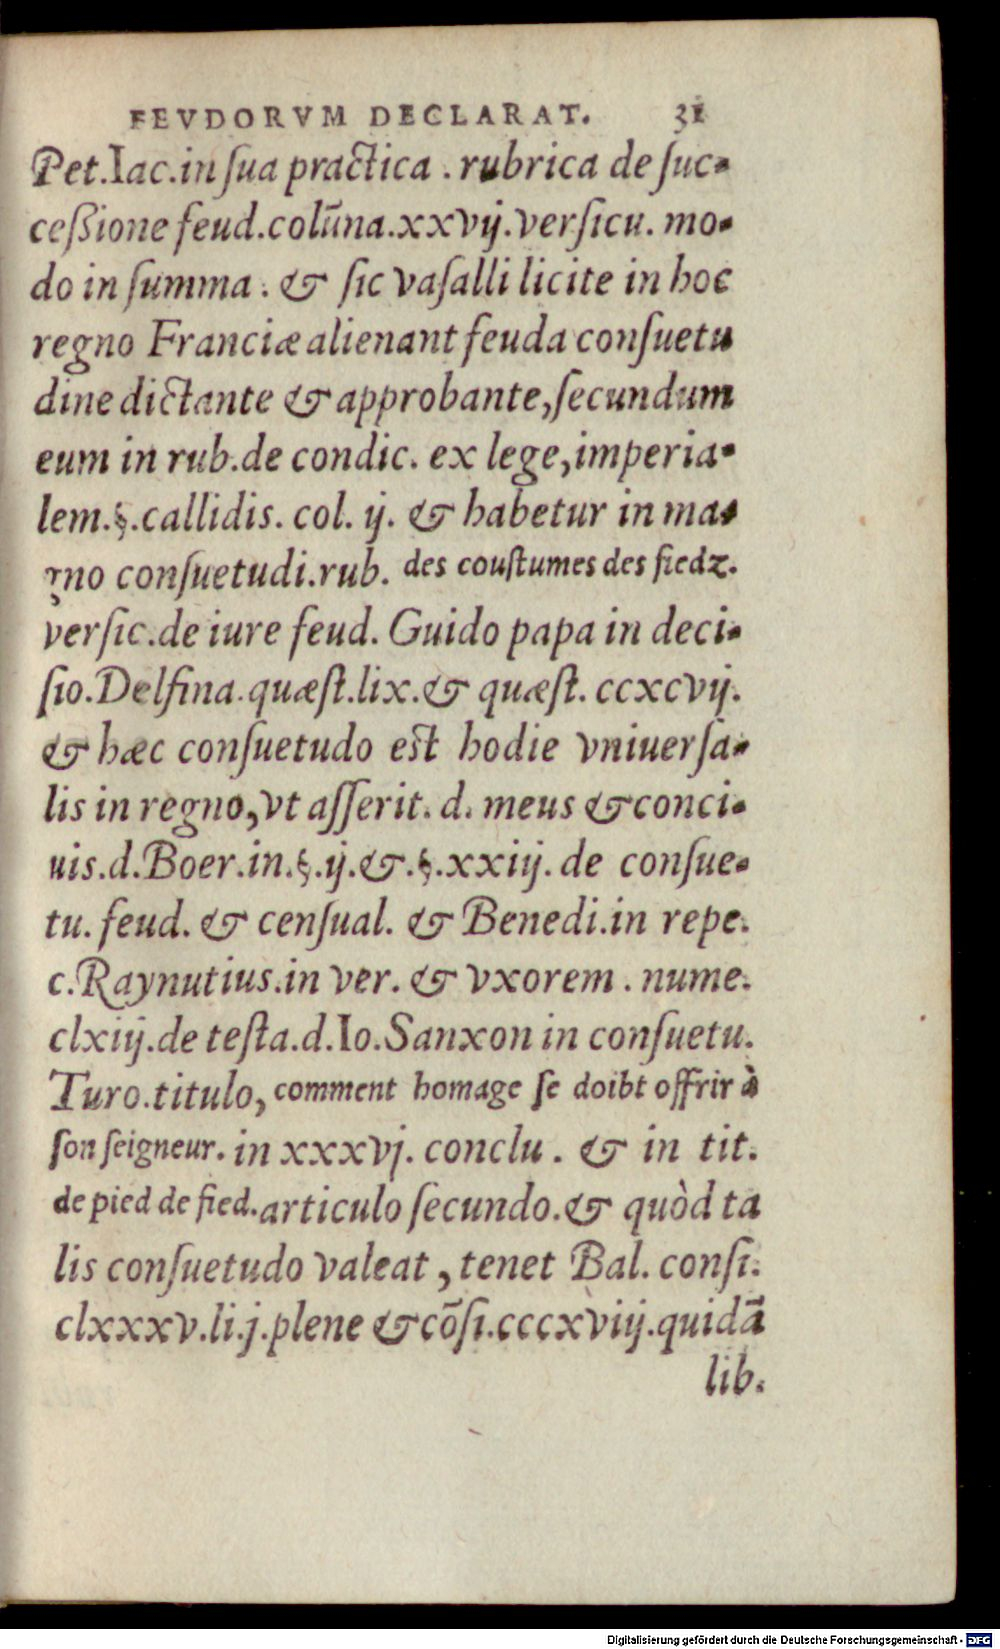 FEVDORVM DECLARAT. 31
Pet.Iac.in ſua practica . rubrica de ſuc-
ceßione feud.colūna.xxvij.verſicu. mo-
do in ſumma . & ſic vaſalli licite in hoc
regno Franciæ alienant feuda conſuetu
dine dictante & approbante,ſecundum
eum in rub.de condic. ex lege,imperia-
lem.§.callidis. col. ij. & habetur in ma-
gno conſuetudi.rub. des couſtumes des fiedz.
verſic.de iure feud. Guido papa in deci-
ſio.Delfina.quæſt.lix.& quæſt. ccxcvij.
& hæc conſuetudo eſt hodie vniuerſa-
lis in regno,vt aſſerit. d. meus & conci-
uis.d.Boer.in.§.ij.&.§.xxiij. de conſue-
tu. feud. & cenſual. & Benedi.in repe.
c.Raynutius.in ver. & vxorem . nume.
clxiij.de teſta.d.Io.Sanxon in conſuetu.
Turo.titulo, comment homage ſe doibt offrir à
ſon ſeigneur. in xxxvj. conclu . & in tit.
de pied de fied.articulo ſecundo.& quòd ta
lis conſuetudo valeat , tenet Bal. conſi.
clxxxv.li.j.plene & cōſi.cccxviij.quidā
lib.
Digitalisierung gefördert durch die Deutsche Forschungsgemeinschaft - DFG